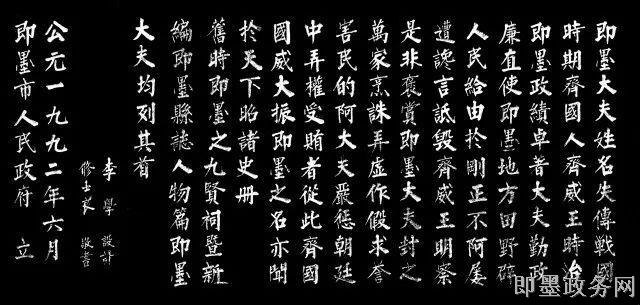 即墨大夫姓名失傳戰國
時期齊國人齊威王時治
即墨政績卓著大夫勤政
廉直使即墨地方田野辟
人民給由於剛正不阿屡
遭讒言詆毀齊威王明察
是非褒賞即墨大夫封之
萬家烹誅弄虛作假求誉
害民的阿大夫嚴惩朝廷
中弄權受賄者從此齊國
國威大振即墨之名亦聞
於天下昭諸史册
舊時即墨之九賢祠暨新
編即墨縣誌人物篇即墨
大夫均列其首
李學 設計
修士家 敬書
公元一九九二年六月
即墨市人民政府 立
即墨政务网